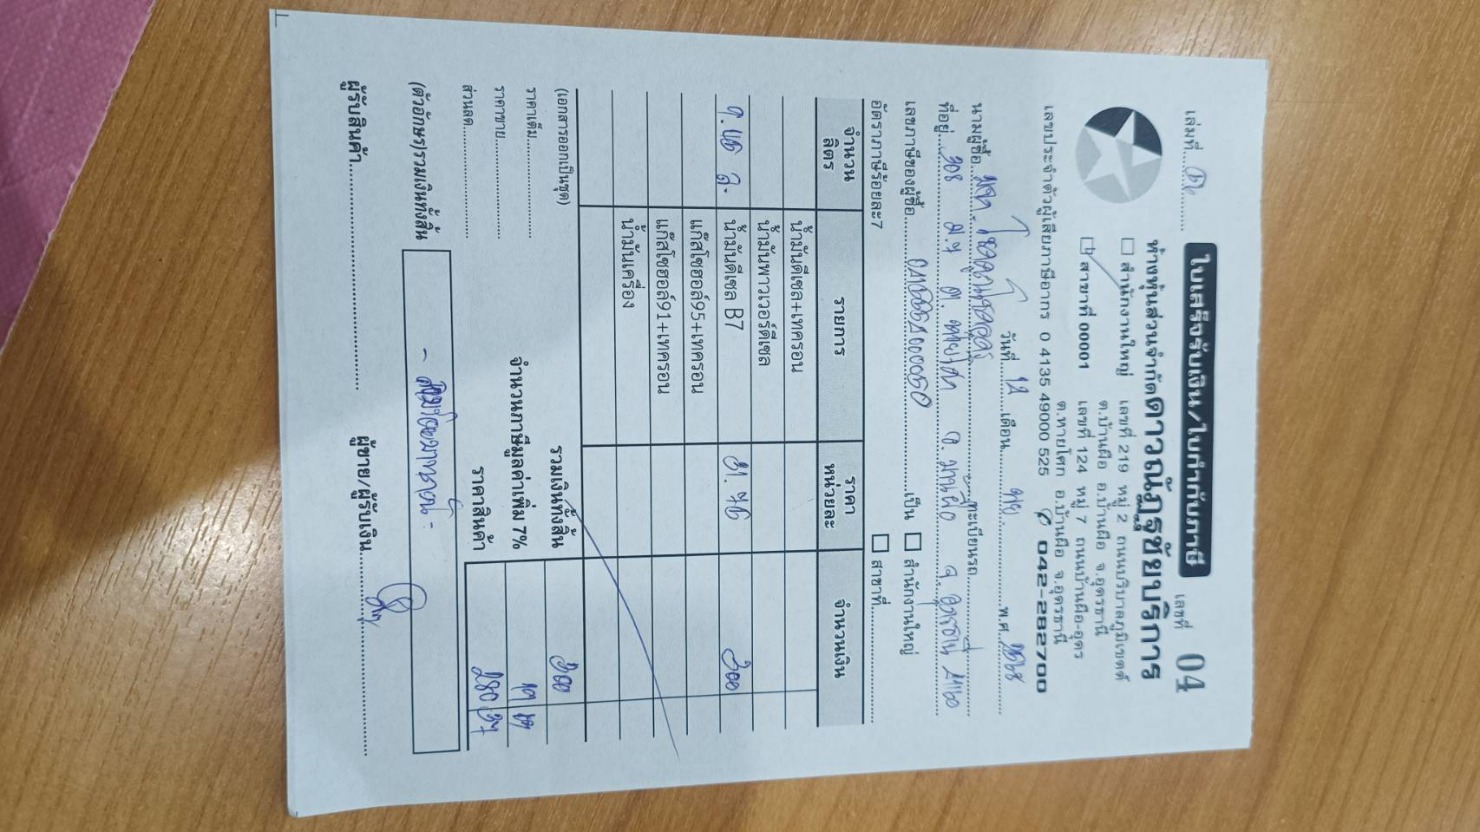 เล่มที่
ใบเสร็จรับเงิน/ใบกำกับภาษี
เลขที่ 04
ห้างหุ้นส่วนจำกัดดาวณัฏฐชัยบริการ
สำนักงานใหญ่ เลขที่ 219 หมู่ 2 ถนนบริบาลภูมิเขตต์
ต.บ้านผือ อ.บ้านผือ จ.อุดรธานี
สาขาที่ 00001 เลขที่ 124 หมู่ 7 ถนนบ้านผือ-อุดร
ต.หายโศก อ.บ้านผือ จ.อุดรธานี
เลขประจำตัวผู้เสียภาษีอากร 0 4135 49000 525 042-282700
วันที่ 12 เดือน พย. พ.ศ. 2568
นามผู้ซื้อ ทะเบียนรถ
ที่อยู่ 308 ม.7 ต. อ. บ้านผือ จ. อุดรธานี 41160
เลขภาษีของผู้ซื้อ เป็น สำนักงานใหญ่
อัตราภาษีร้อยละ7 สาขาที่
จำนวนลิตร รายการ ราคาหน่วยละ จำนวนเงิน
น้ำมันดีเซล+เทครอน
น้ำมันพาวเวอร์ดีเซล
น้ำมันดีเซล B7 31.76 300
แก๊สโซฮอล์95+เทครอน
แก๊สโซฮอล์91+เทครอน
น้ำมันเครื่อง
(เอกสารออกเป็นชุด) รวมเงินทั้งสิ้น 300
ราคาเต็ม จำนวนภาษีมูลค่าเพิ่ม 7%
ราคาขาย ราคาสินค้า 280 37
ส่วนลด
(ตัวอักษร)รวมเงินทั้งสิ้น - สามร้อยบาทถ้วน -
ผู้รับสินค้า ผู้ขาย/ผู้รับเงิน